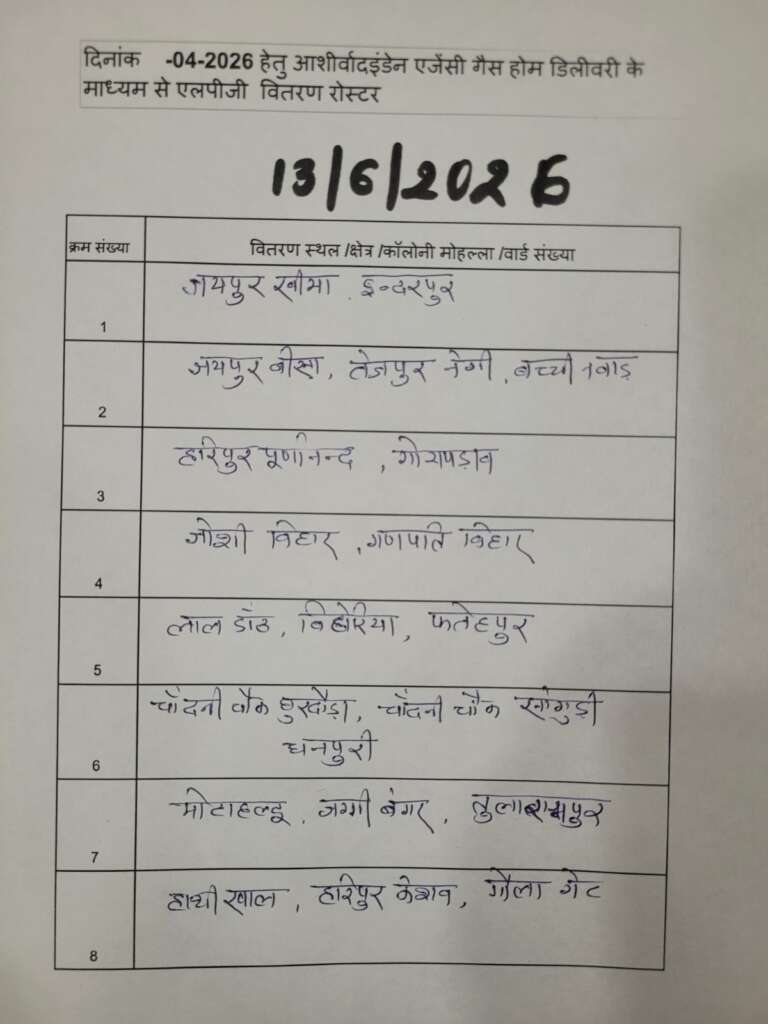 दिनांक -04-2026 हेतु आशीर्वादइंडेन एजेंसी गैस होम डिलीवरी के
माध्यम से एलपीजी वितरण रोस्टर
13/6/2026
क्रम संख्या वितरण स्थल /क्षेत्र /कॉलोनी मोहल्ला /वार्ड संख्या
1 जयपुर खीमा, इन्दरपुर
2 जयपुर बीसा, तेजपुर नेगी, बच्ची नवाड़
3 हरिपुर पूर्णानन्द, गोरापड़ाव
4 जोशी विहार, गणपति विहार
5 लाल डाँठ, बिठोरिया, फतेहपुर
6 चाँदनी चौक घुड़दौड़ा, चाँदनी चौक
धनपुरी
7 मोटाहल्दू, जग्गी बंगर, तुलारामपुर
8 हाथीखाल, हरिपुर केशव, गौला गेट